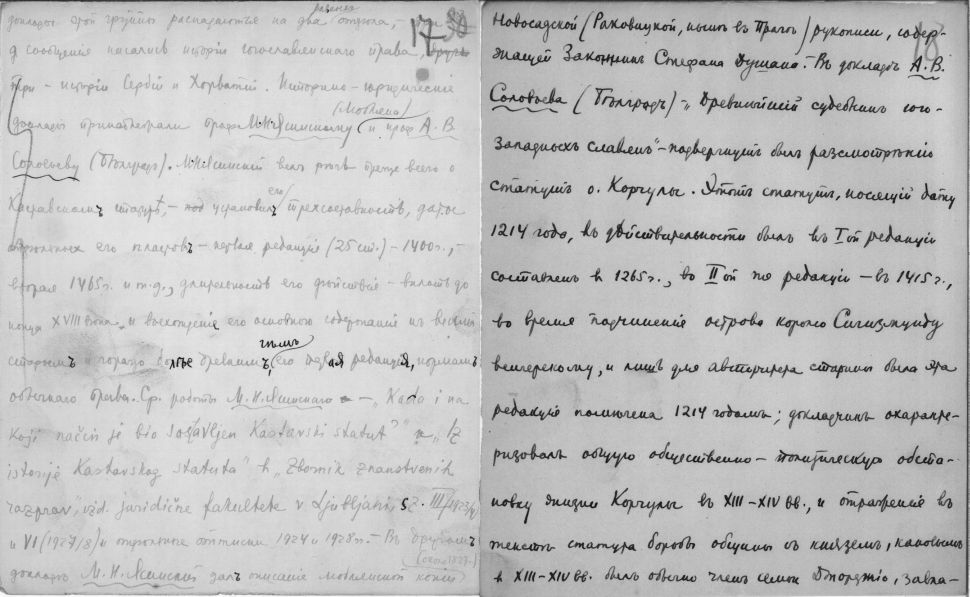 доклады этой группы распадаются на два отдела, —
17
д сообщения писались истории югославянского права, другие
три — истории Сербии и Хорватии. Историко-юридические
доклады принадлежали профес. М.Н. Ясинскому (Любляна) и проф. А. В.
Соловьеву (Белград). М.Н. Ясинский вел речь прежде всего о
Каставском статуте, — установил его трехсоставность, датов
отдельных его пластовъ — первая редакция (25 ст.) — 1400 г., —
вторая 1465 г. и т.д., длительность его действия — вплоть до
конца XVIII века и восхождение его основного содержания къ
старымъ и гораздо болѣе древнимъ, чѣмъ его первая редакция, нормамъ
обычного права. Ср. работы М. Н. Ясинскаго — „Kado i na
koji način je bio sastavljen Kastavski statut?" и „Iz
istorije Kastavskog statuta" в „Zbornik znanstvenih
razprav", izd. juridične fakultete v Ljubljani, sz. III (1923/4)
и VI (1927/8) и отдельные оттиски 1924 и 1928 г. — Въ другомъ
докладѣ М. Н. Ясинский далъ описание мовлянской копии (около 1823 г.)
18
Новосадской (Раковицкой, нынѣ въ Прагѣ) рукописи, содер-
жащей Законникъ Стефана Душана. — Въ докладѣ А. В.
Соловьева (Бѣлградъ) — „Древнѣйший судебникъ юго-
западныхъ славянъ" — подвергнутъ былъ разсмотрѣнию
статутъ о. Корчулы. Этотъ статутъ, носящий дату
1214 года, въ дѣйствительности былъ въ I ой редакции
составленъ в 1265 г., во II ой же редакции — въ 1415 г.,
во время подчинения острова королю Сигизмунду
венгерскому, и лишь для авторитета старины была эта
редакция помѣчена 1214 годомъ; докладчикъ охаракте-
ризовалъ общую общественно-политическую обста-
новку жизни Корчулы въ XIII–XIV вв., и отражение въ
текстѣ статута борьбы общины съ княземъ, каковымъ
в XIII–XIV вв. былъ обычно членъ семьи Джорджио, завла-